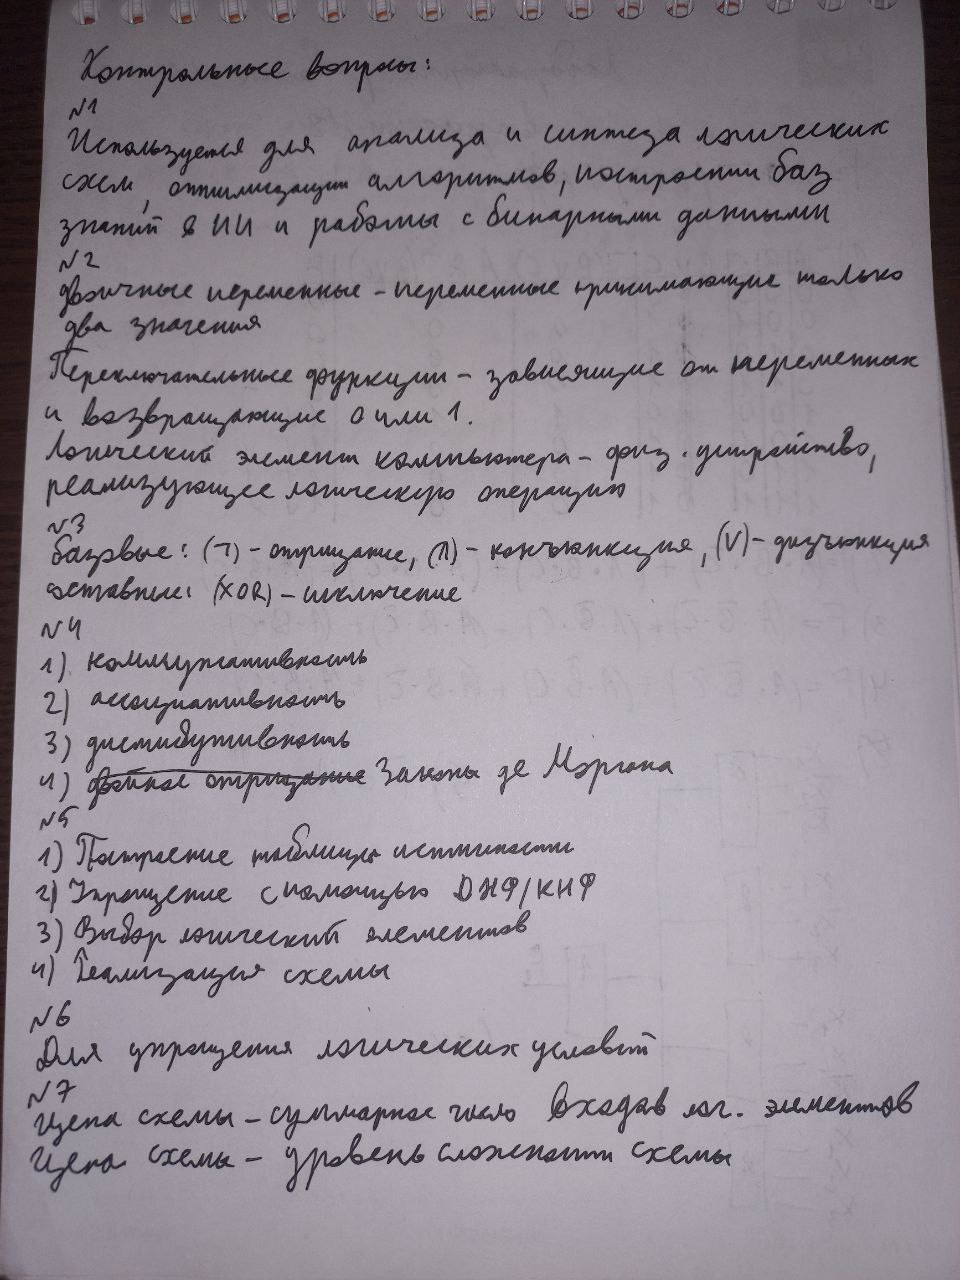 Контрольные вопросы:
№1
Используется для анализа и синтеза логических
схем, оптимизации алгоритмов, построении баз
знаний в ИИ и работы с бинарными данными
№2
Двоичные переменные - переменные принимающие только
два значения
Переключательные функции - зависящие от переменных
и возвращающие 0 или 1.
Логический элемент компьютера - физ. устройство,
реализующее логическую операцию
№3
базовые: (¬) - отрицание, (∧) - конъюнкция, (∨) - дизъюнкция
составные: (XOR) - исключение
№4
1) коммутативность
2) ассоциативность
3) дистибутивность
4) двойное отрицание Законы де Моргана
№5
1) Построение таблицы истинности
2) Упрощение с помощью ДНФ/КНФ
3) Выбор логический элементов
4) Реализация схемы
№6
Для упрощения логических условий
№7
Цена схемы - суммарное число входов лог. элементов
Цена схемы - уровень сложности схемы